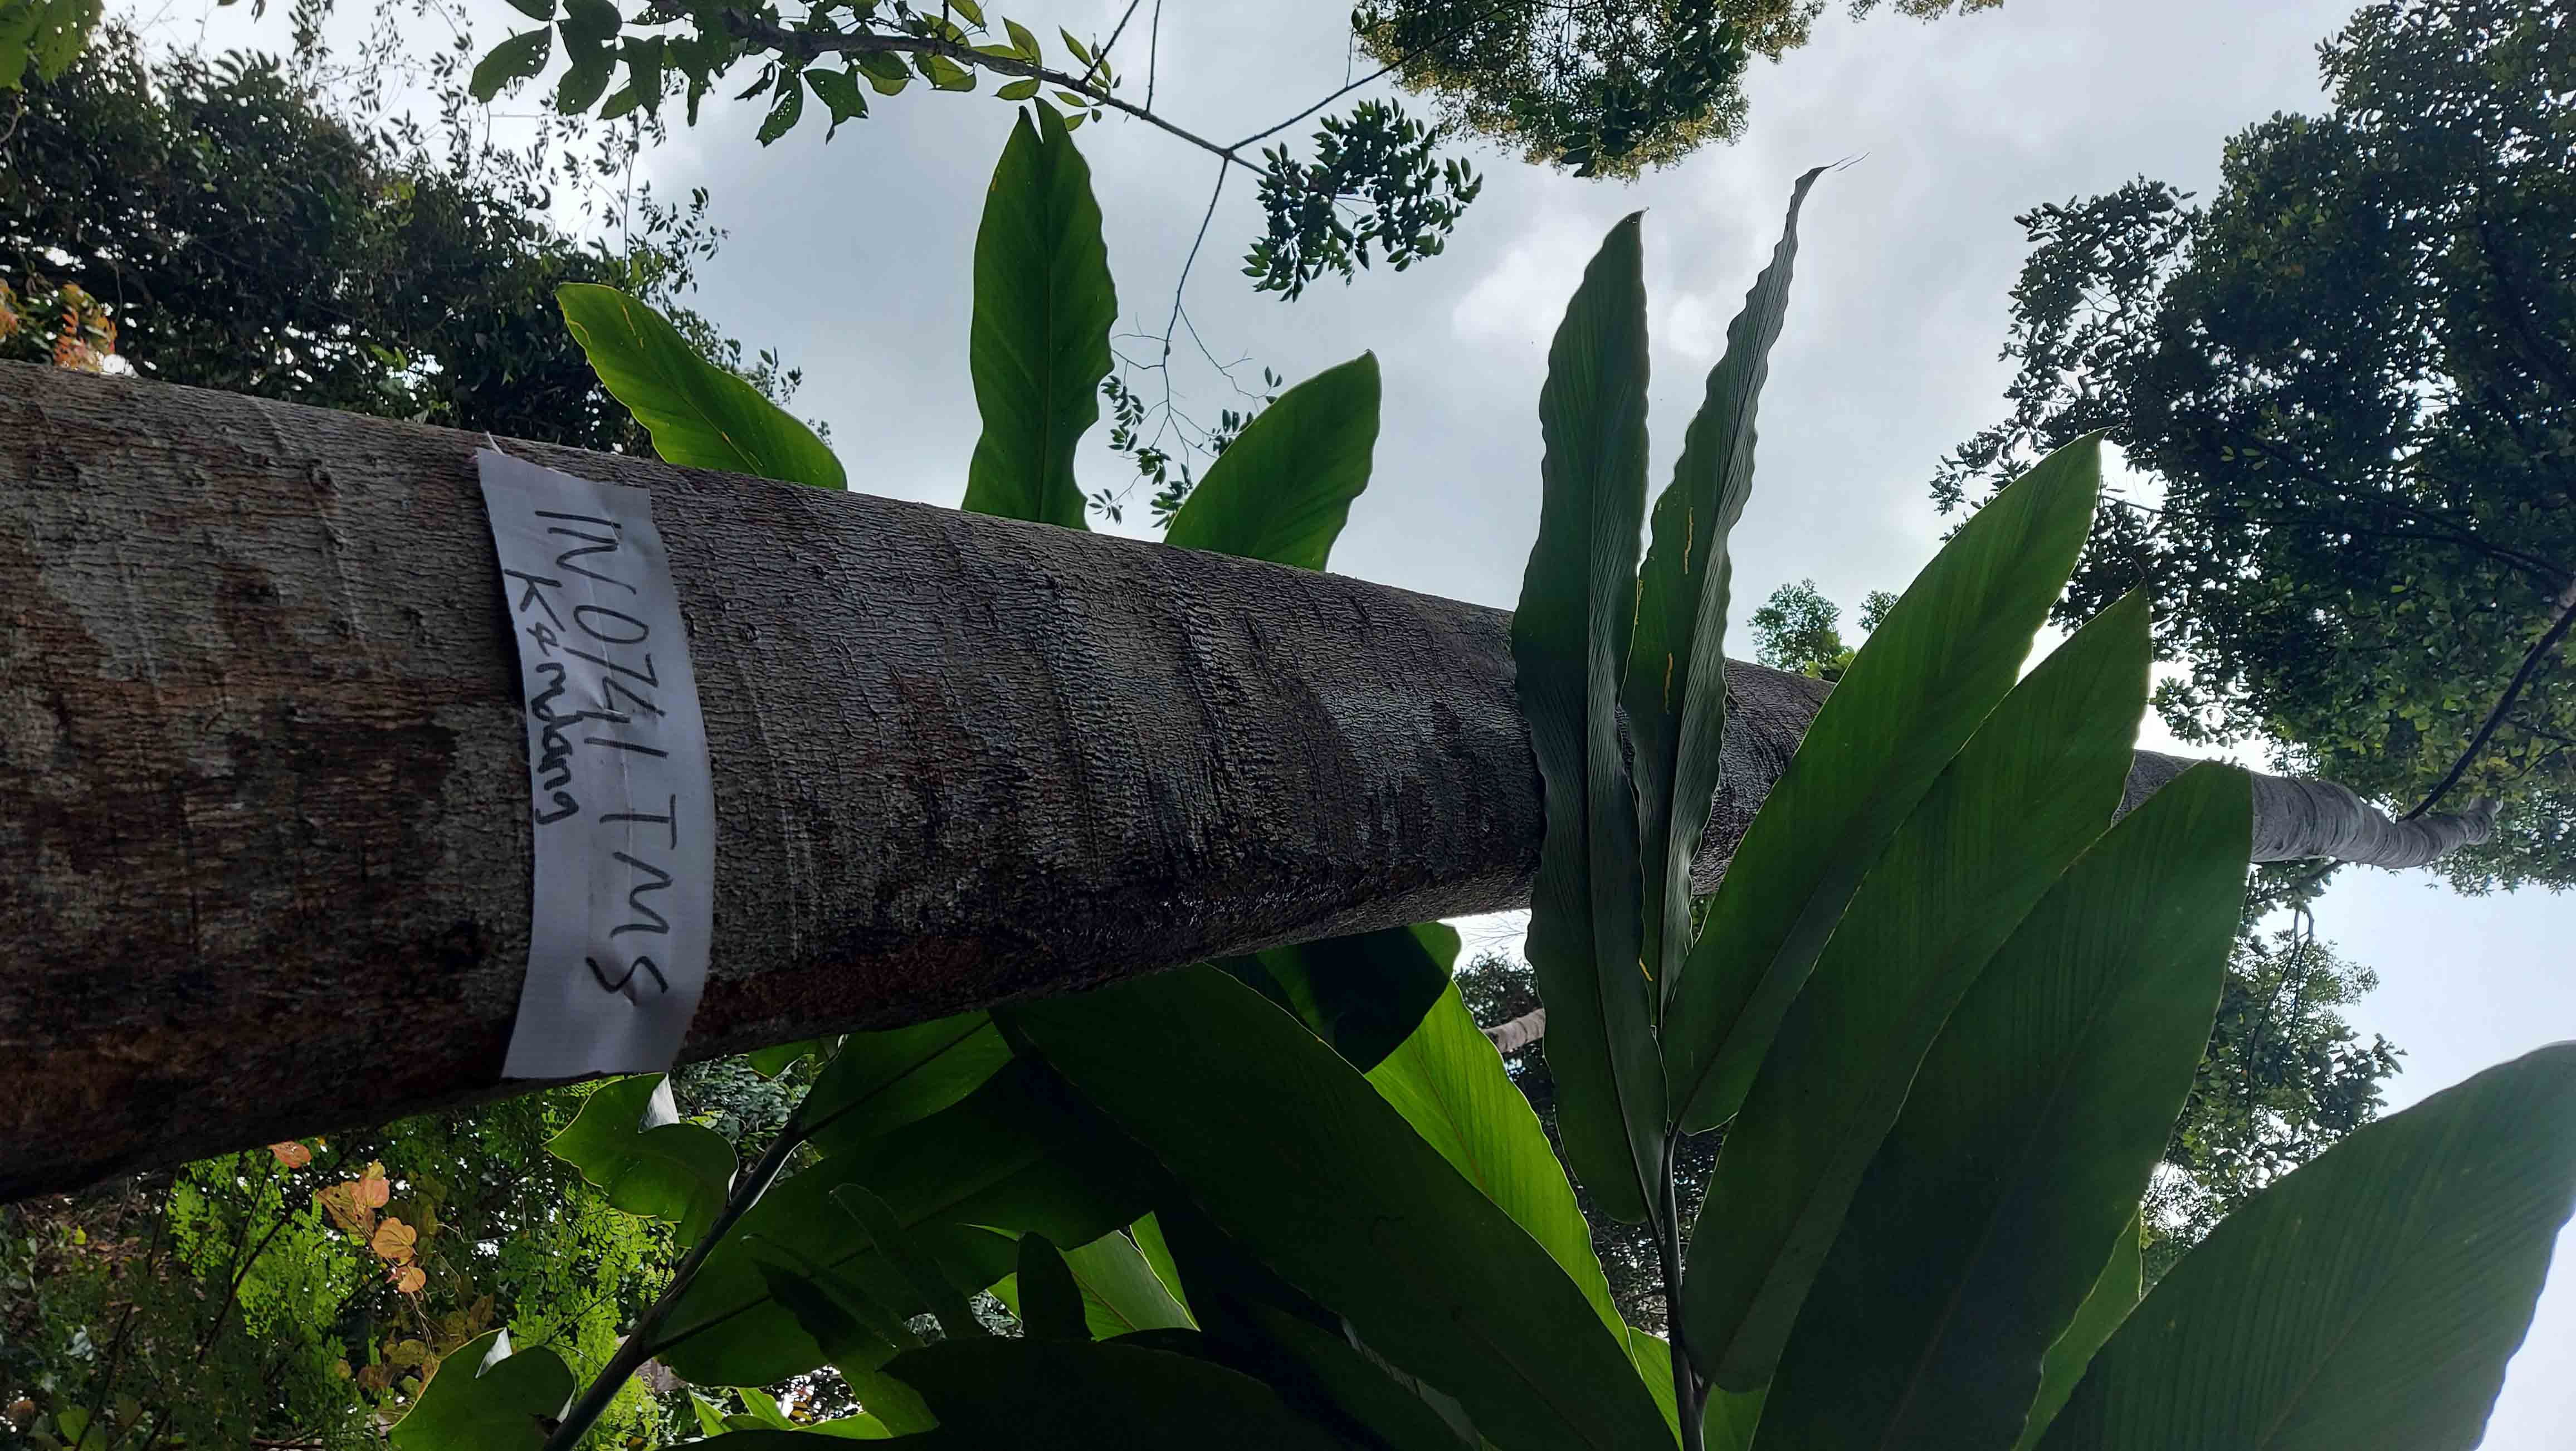 INV0741 TMS
Kembang